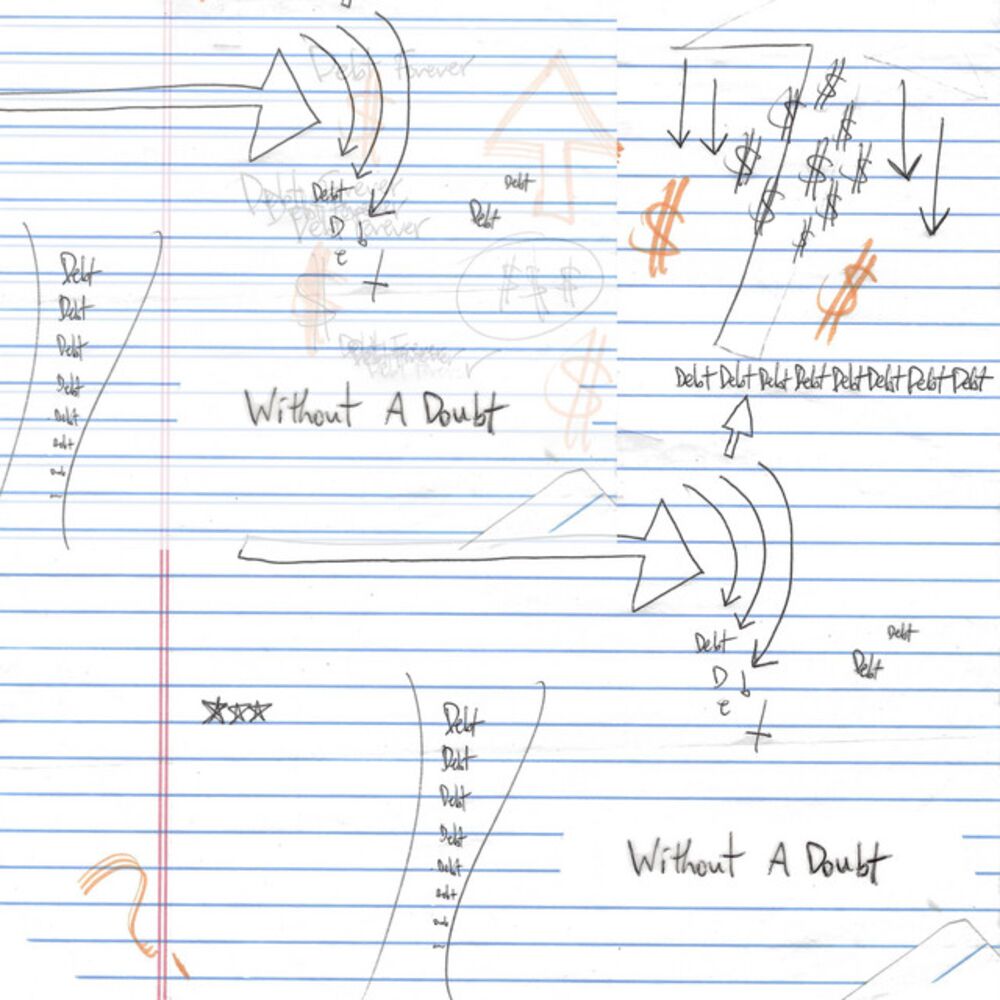 Debt Forever
$
$
$
$
$
$
$
$
$
$
$
Debt Forever
Debt
Debt
$
Debt
D
b
e
t
$
$ $ $
$
Debt
Debt
Debt
Debt
Debt
Debt
Debt Forever
$
Debt Debt Debt Debt Debt Debt Debt Debt
Without A Doubt
Debt
Debt
D
b
e
t
Debt
Debt
Debt
Debt
Debt
Debt
Debt
Without A Doubt